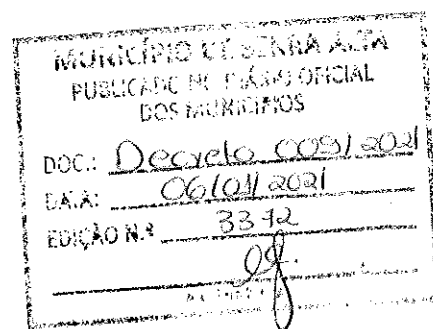 MUNICÍPIO DE SERRA ALTA
PUBLICADO NO DIÁRIO OFICIAL
DOS MUNICÍPIOS
DOC.: Decreto 009/2021
DATA: 06/01/2021
EDIÇÃO N.º 3372